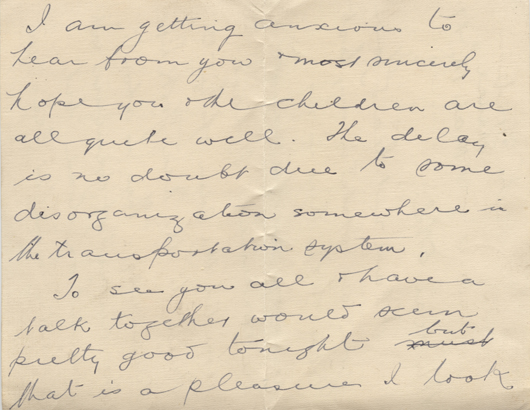 I am getting anxious to
hear from you & most sincerely
hope you & the children are
all quite well. The delay
is no doubt due to some
disorganization somewhere in
the transportation system.
To see you all & have a
talk together would seem
pretty good tonight ~~must~~ but
that is a pleasure I look